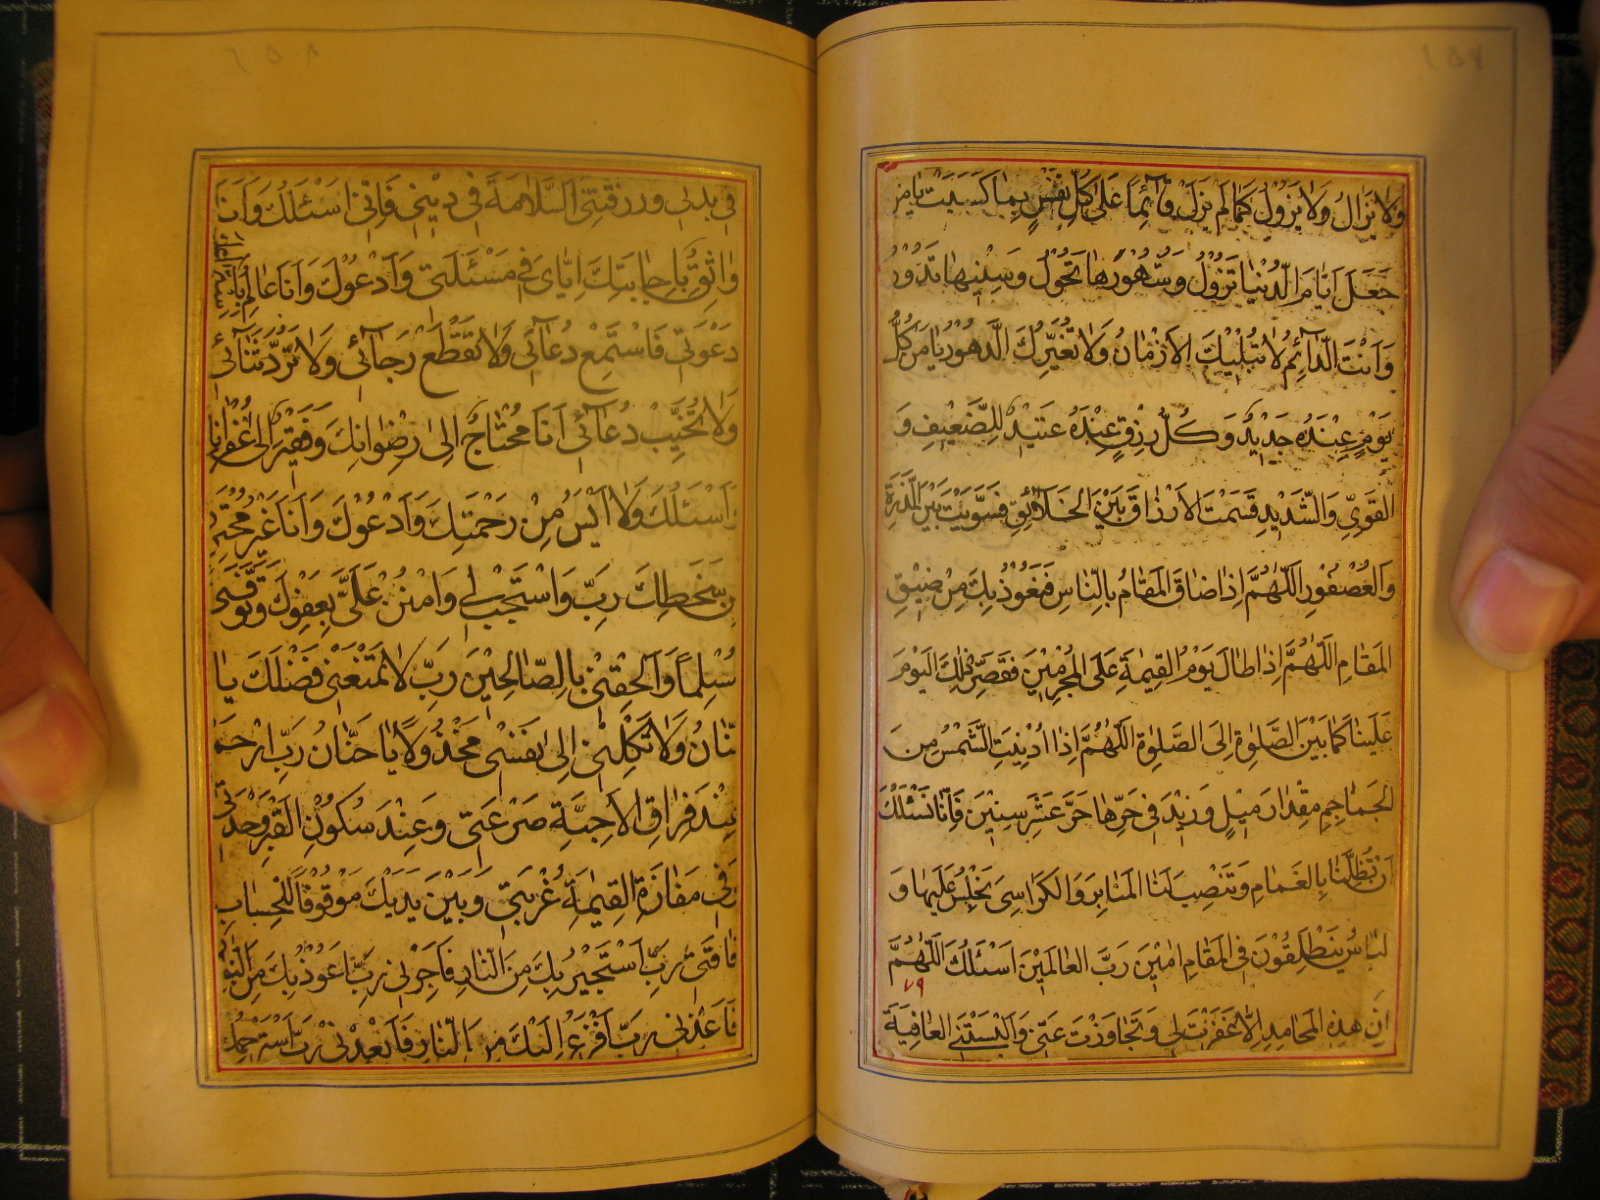 ١٥٧
ولا يزال ولا يزول كما لم يزل قآئما على كل نفس بما كسبت يا من
جعل ايام الدنيا تزول وشهورها تحول وسنينها تدور
وانت الدآئم لا تبليك الازمان ولا تغيرك الدهور يا من كل
يوم عنده جديد وكل رزق عنده عتيد للضعيف و
القوي والشديد قسمت الارزاق بين الخلائق فسويت بين الذرة
والعصفور اللهم اذا ضاق المقام بالناس فنعوذ بك من ضيق
المقام اللهم اذا طال يوم القيمة على المجرمين فقصر ذلك اليوم
علينا كما بين الصلوة الى الصلوة اللهم اذا ادنيت الشمس من
الجماجم مقدار ميل وزيد في حرها حر عشر سنين فانا نسئلك
ان تظلنا بالغمام وتنصب لنا المنابر والكراسي نجلس عليها و
الناس ينطلقون في المقام امين رب العالمين اسئلك اللهم
٧٩
هذه المحامد الا غفرت لي وتجاوزت عني والبستني العافية
١٥٨
في بدني ورزقتني السلامة في ديني فاني اسئلك وانا
واثق باجابتك اياي في مسئلتي وادعوك وانا عالم باستماعك
دعوتي فاستمع دعآئي ولا تقطع رجآئي ولا ترد ثنآئي
ولا تخيب دعآئي انا محتاج الى رضوانك وفقير الى غفرانك
واسئلك ولا ايس من رحمتك وادعوك وانا غير محترز
من سخطك رب واستجب لي وامنن علي بعفوك وتوفني
مسلما والحقني بالصالحين رب لا تمنعني فضلك يا
منان ولا تكلني الى نفسي مخذولا يا حنان رب ارحم
عند فراق الاحبة صرعتي وعند سكون القبر وحدتي
وفي مفازة القيمة غربتي وبين يديك موقوفا للحساب
فاقتي رب استجير بك من النار فاجرني رب اعوذ بك من النار
فاعذني رب افزع اليك من النار فابعدني رب استرحمك